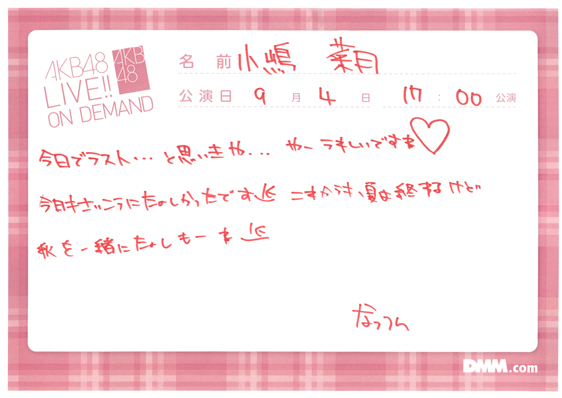 AKB48
LIVE!!
ON DEMAND
AKB
48
名前 小嶋 菜月
公演日 9月4日 17:00 公演
今日でラスト... と思いきや... やーうれしいですね♡
今日もさいこうにたのしかったです
夏は終わるけど
秋を一緒にたのしもーね
なっつん
DMM.com